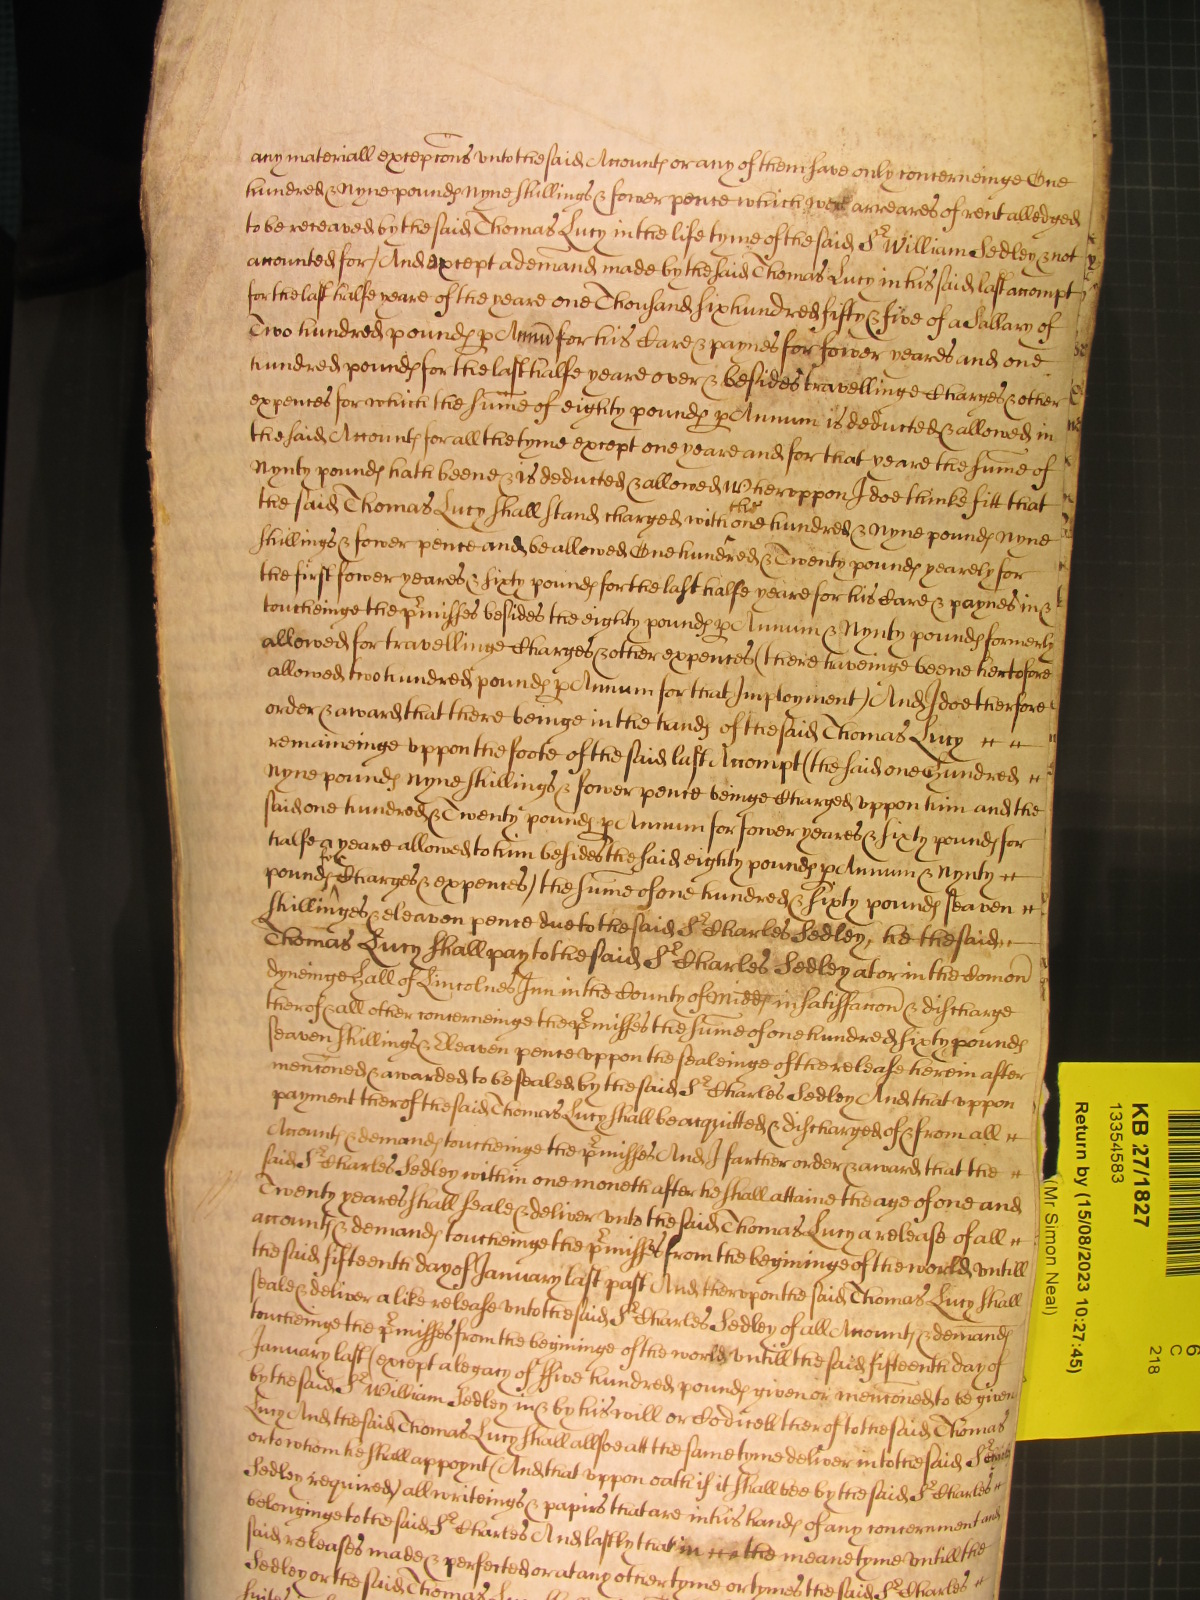 any materiall excepcons unto the said Accounts or any of them have only concerneinge One
hundred & Nyne pounds Nyne shillings & fower pence which were arreares of rent alledged
to be receaved by the said Thomas Lucy in the life tyme of the said Sr William Sedley & not
accounted for / And except a demand made by the said Thomas Lucy in his said last accompt
for the last halfe yeare of the yeare one Thousand six hundred fifty & five of a Sallary of
Two hundred pounds p Annu for his Care & paynes for fower yeares and one
hundred pounds for the last halfe yeare over & besides travellinge Charges & other
expences for which the sume of eighty pounds p Annum is deducted & allowed in
the said Accounts for all the tyme except one yeare and for that yeare the sume of
Nynty pounds hath beene & is deducted & allowed Wheruppon I doe thinke fitt that
the said Thomas Lucy shall stand charged with the one hundred & Nyne pounds Nyne
shillings & fower pence and be allowed One hundred & Twenty pounds yearely for
the first fower yeares & sixty pounds for the last halfe yeare for his Care & paynes in &
toucheinge the pmisses besides the eighty pounds p Annum & Nynty pounds formerly
allowed for travellinge Charges & other expences (there haveinge beene hertofore
allowed two hundred pounds p Annum for that Imployment) And I doe therfore
order & award that there beinge in the hands of the said Thomas Lucy
remaineinge uppon the foote of the said last Accompt (the said one hundred
Nyne pounds Nyne shillings & fower pence beinge Charged uppon him and the
said one hundred & Twenty pounds p Annum for fower yeares & sixty pounds for
halfe a yeare allowed to him besides the said eighty pounds p Annum & Nynty
pounds for Charges & expences) the sume of one hundred & sixty pounds seaven
shillinges & eleaven pence due to the said Sr Charles Sedley, he the said
Thomas Lucy shall pay to the said Sr Charles Sedley at or in the Comon
dyneinge hall of Lincolnes Inn in the County of Midds in satisfaccon & discharge
therof & all other concerneinge the pmisses the sume of one hundred sixty pounds
seaven shillings & Eleaven pence uppon the sealeinge of the release herein after
menconed & awarded to be sealed by the said Sr Charles Sedley And that uppon
payment therof the said Thomas Lucy shall be acquitted & discharged of & from all
Accounts & demands toucheinge the pmisses And I farther order & award that the
said Sr Charles Sedley within one moneth after he shall attaine the age of one and
Twenty yeares shall seale & deliver unto the said Thomas Lucy a release of all
accounts & demands toucheinge the pmisses from the begininge of the world untill
the said fifteenth day of January last past And therupon the said Thomas Lucy shall
seale & deliver a like release unto the said Sr Charles Sedley of all Accounts & demands
toucheinge the pmisses from the begininge of the world untill the said fifteenth day of
January last (except a legacy of ffive hundred pounds given or menconed to be given
by the said Sr William Sedley in & by his will or Codicell therof to the said Thomas
Lucy And the said Thomas Lucy shall allsoe att the same tyme deliver into the said Sr Charles
or to whom he shall appoynt (And that uppon oath if it shall bee by the said Sr Charles
Sedley required) all writeings & papirs that are in his hands of any concernment and
belonginge to the said Sr Charles And lastly that in the meane tyme untill the
said releases made & perfected or at any other tyme or tymes the said Sr Charles
Sedley or the said Thomas
KB 27/1827
13354583
Return by (15/08/2023 10:27:45)
(Mr Simon Neal)
6
C
218